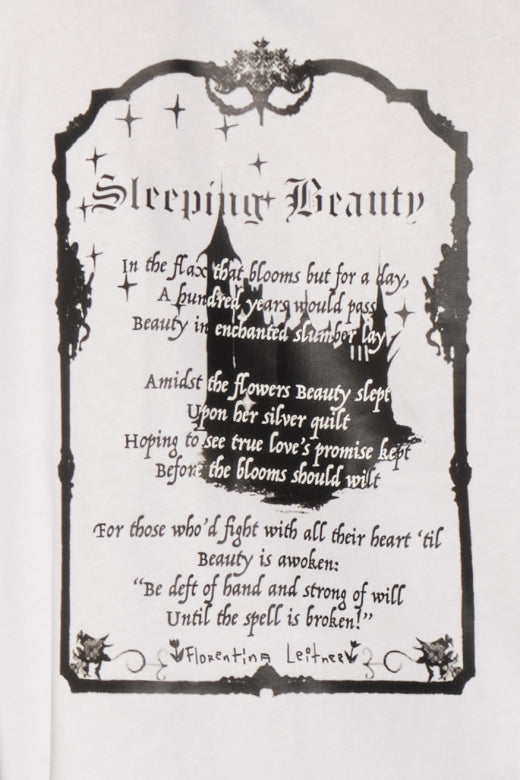 Sleeping Beauty
In the flax that blooms but for a day,
A hundred years would pass
Beauty in enchanted slumber lay
Amidst the flowers Beauty slept
Upon her silver quilt
Hoping to see true love's promise kept
Before the blooms should wilt
For those who'd fight with all their heart 'til
Beauty is awoken:
"Be deft of hand and strong of will
Until the spell is broken!"
Florentina Leitner